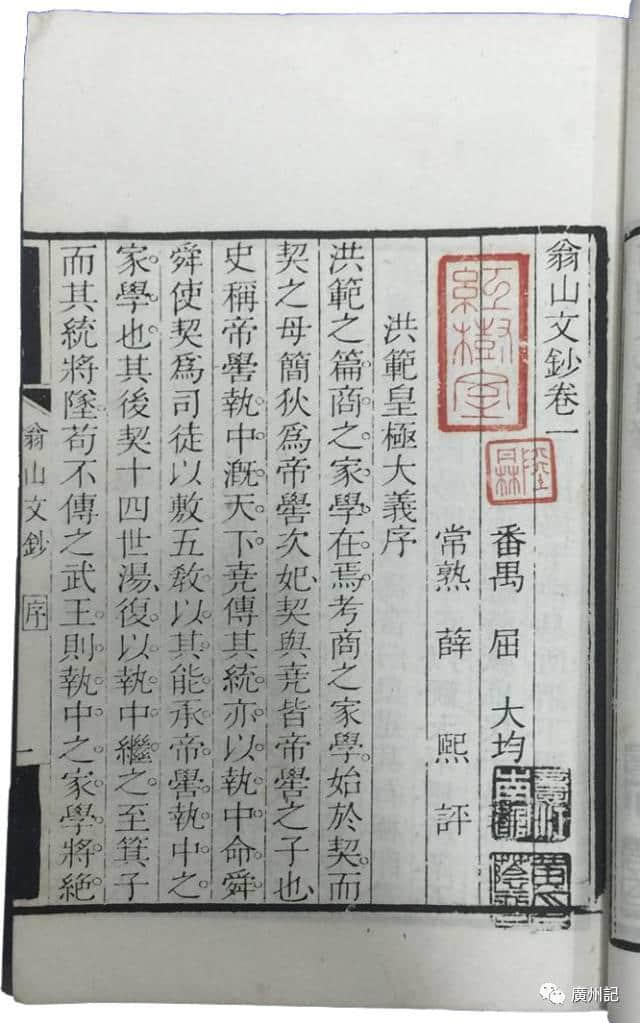 翁山文鈔卷一
番禺 屈 大均
常熟 薛 熙 評
洪範皇極大義序
洪範之篇商之家學在焉考商之家學始於契而
契之母簡狄爲帝嚳次妃契與堯皆帝嚳之子也
史稱帝嚳執中溉天下堯傳其統亦以執中命舜
舜使契爲司徒以敷五教以其能承帝嚳執中之
家學也其後契十四世湯復以執中繼之至箕子
而其統將墜苟不傳之武王則執中之家學將絶
翁山文鈔 序 一
紅樹室
廣州記